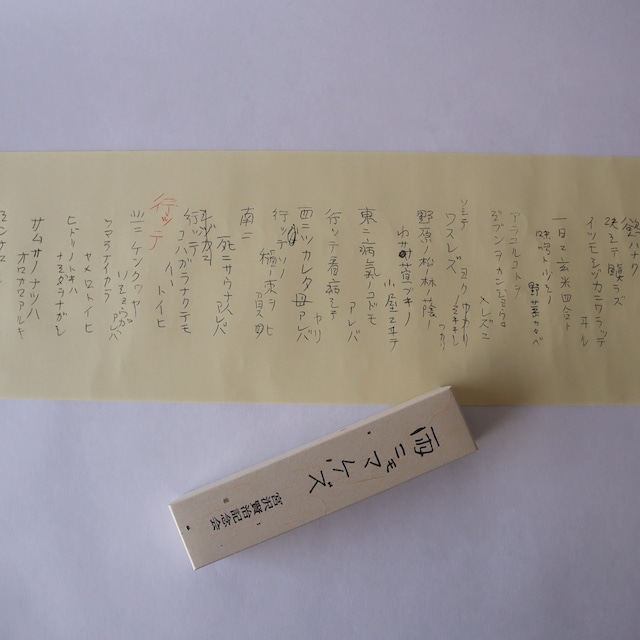 慾ハナク
決シテ瞋ラズ
イツモシヅカニワラッテ
ヰル
一日ニ玄米四合ト
味噌ト少シノ
野菜ヲタベ
アラユルコトヲ
ジブンヲカンジョウニ
入レズニ
ソシテ
ワスレズ
野原ノ松ノ林ノ蔭ノ
小屋ニヰテ
東ニ病氣ノコドモ
アレバ
行ッテ看病シテ
ヤリ
西ニツカレタ母アレバ
行ッテソノ
稲ノ束ヲ
負ヒ
南ニ
死ニサウナ人
アレバ
行ッテ
コハガラナクテモ
イヽ
トイヒ
行ッテ
北ニケンクヮヤ
アレバ
ツマラナイカラ
ヤメロトイヒ
ヒドリノトキハ
ナミダヲナガシ
サムサノナツハ
オロオロアルキ
雨ニモマケズ
宮沢賢治記念会